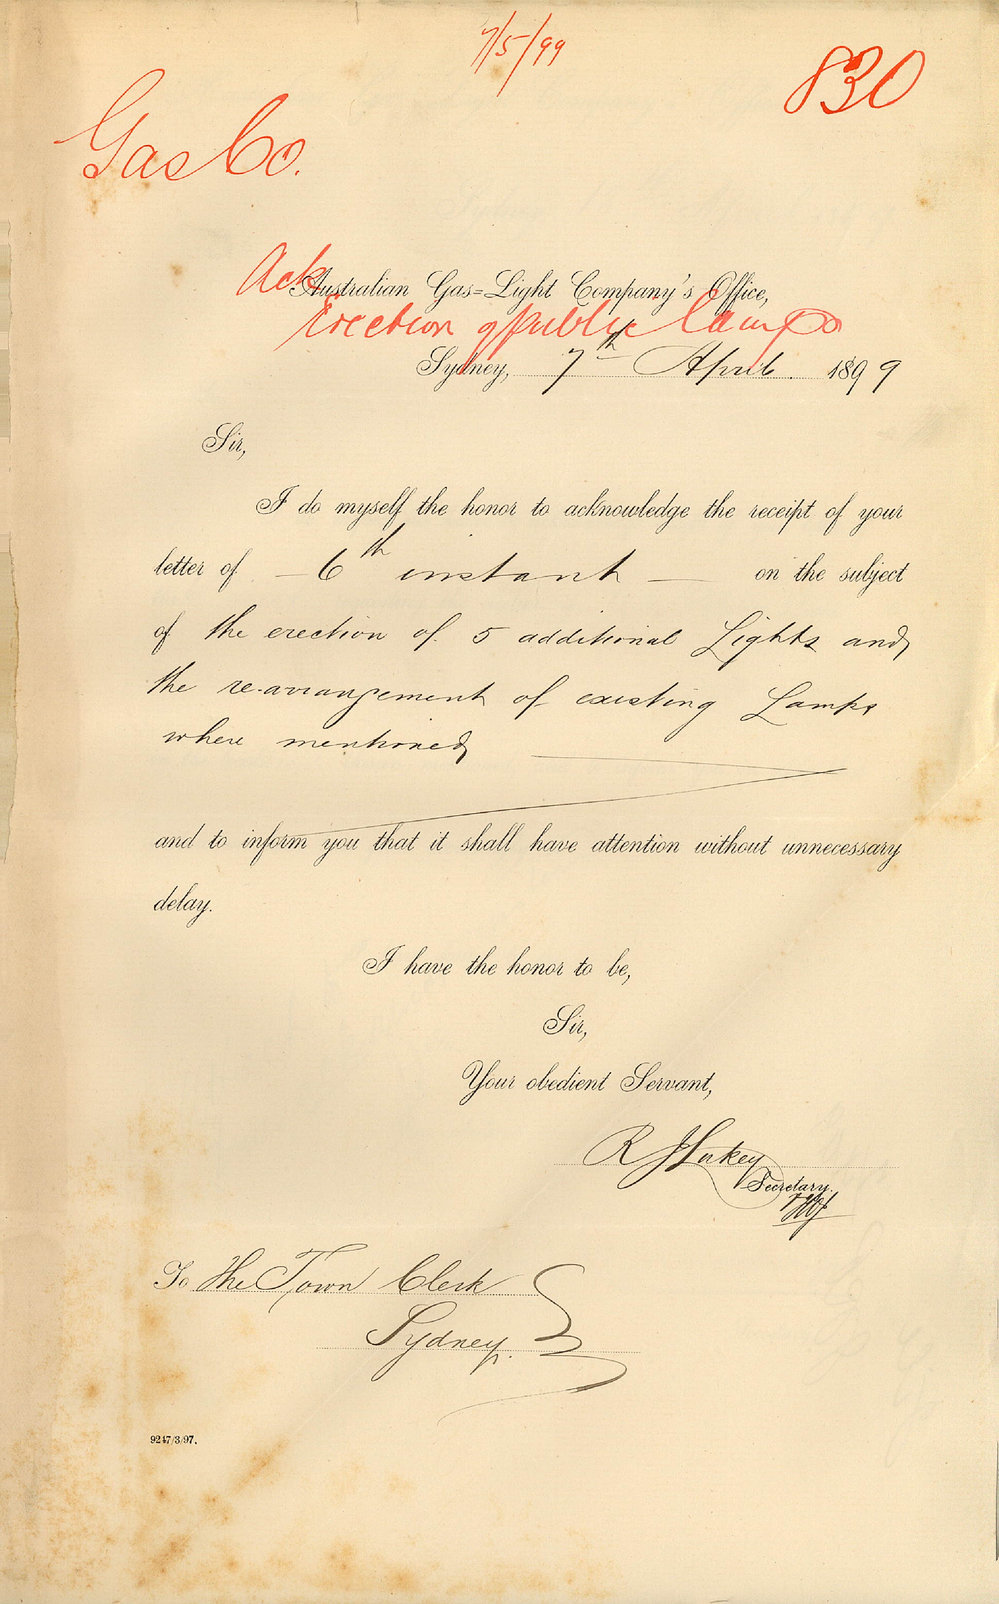 7/5/99
830
Gas Co.
Ack
Australian Gas=Light Company's Office,
Erection of public lamps
Sydney, 7th April. 1899
Sir,
I do myself the honor to acknowledge the receipt of your
letter of — 6th instant — on the subject
of the erection of 5 additional Lights and
the re-arrangement of existing Lamps
where mentioned
and to inform you that it shall have attention without unnecessary
delay.
I have the honor to be,
Sir,
Your obedient Servant,
R J Lukey
Secretary.
To The Town Clerk
Sydney.
9247/3/97.